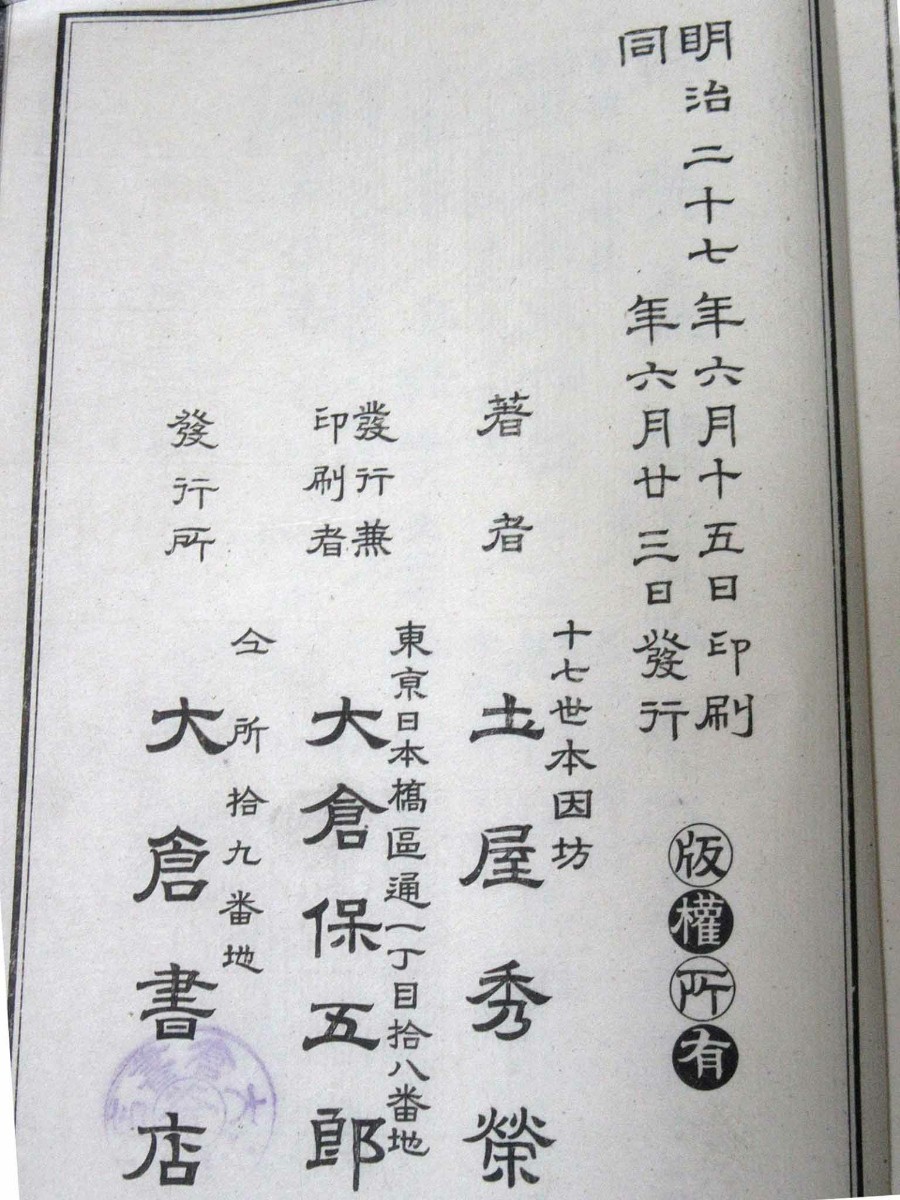 明治二十七年六月十五日印刷
同年六月廿三日發行
版權所有
著者
十七世本因坊
土屋秀榮
發行兼
印刷者
東京日本橋區通一丁目拾八番地
大倉保五郎
發行所
仝所拾九番地
大倉書店